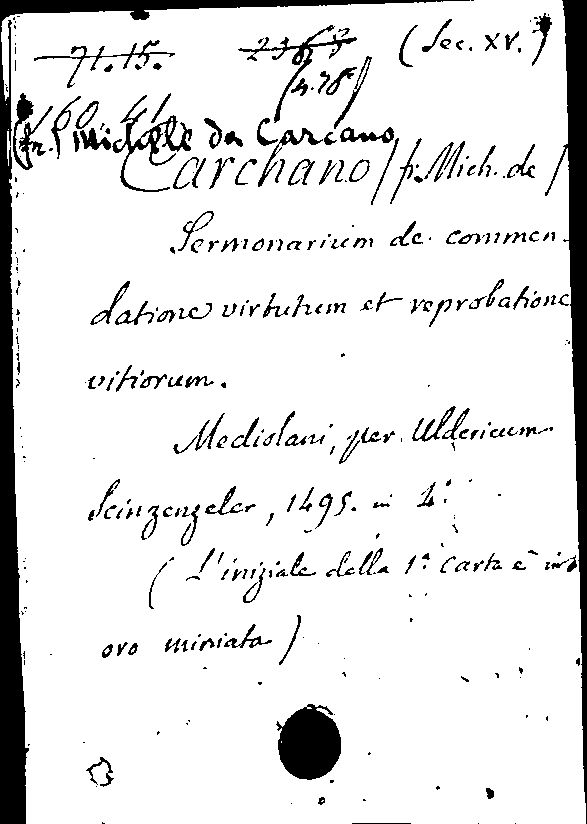 71.15. 2363 (Sec. XV.)
(4.78
60 41
(fr.) Michele da Carcano
Carchano / fr. Mich. de /
Sermonarium de commen-
datione virtutum et reprobatione
vitiorum.
Mediolani, per Uldericum
Scinzenzeler, 1495. in 4.°
(L'iniziale della 1ª carta è in
oro miniata)